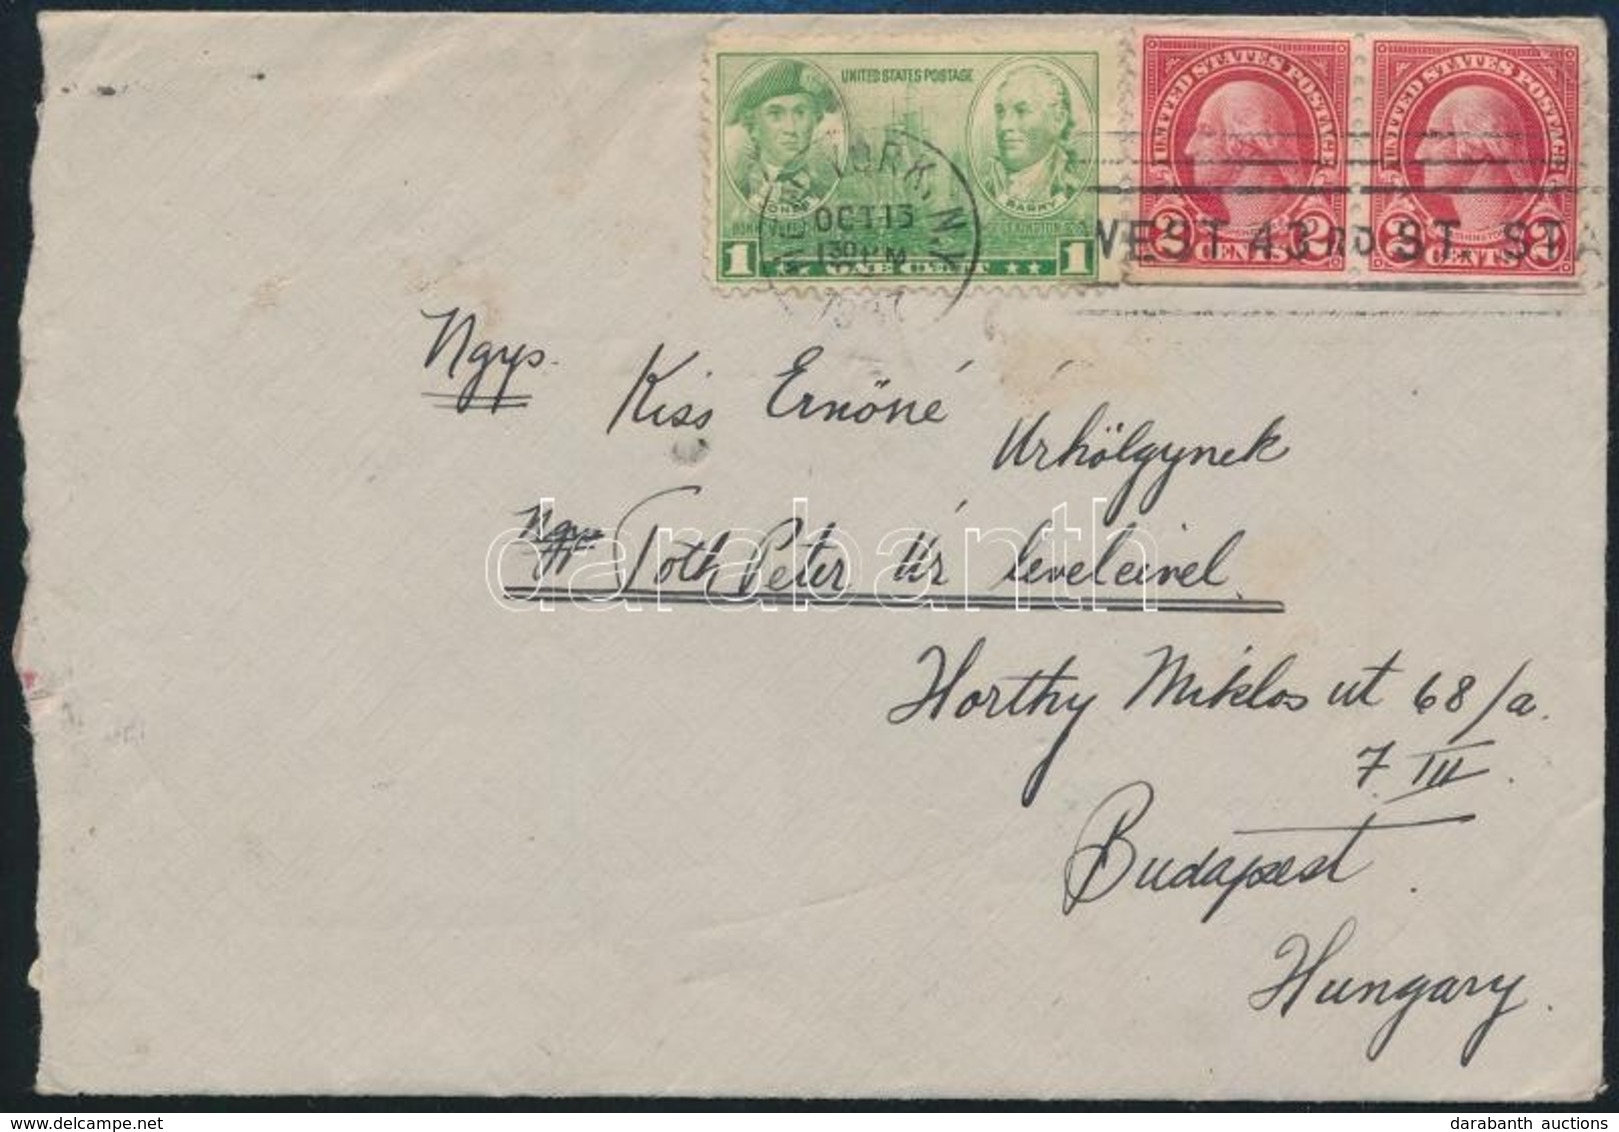 UNITED STATES POSTAGE
JONES
BARRY
1 ONE CENT 1
UNITED STATES POSTAGE
2 CENTS 2
UNITED STATES POSTAGE
2 CENTS 2
NEW YORK, N.Y.
OCT 13
130 PM
1937
WEST 43RD ST. STA
Ngys.
Kiss Ernőné
Úrhölgynek
Toth Péter Úr leveleivel.
Horthy Miklos ut 68/a.
7. III.
Budapest.
Hungary.
darabanth
darabanth auctions